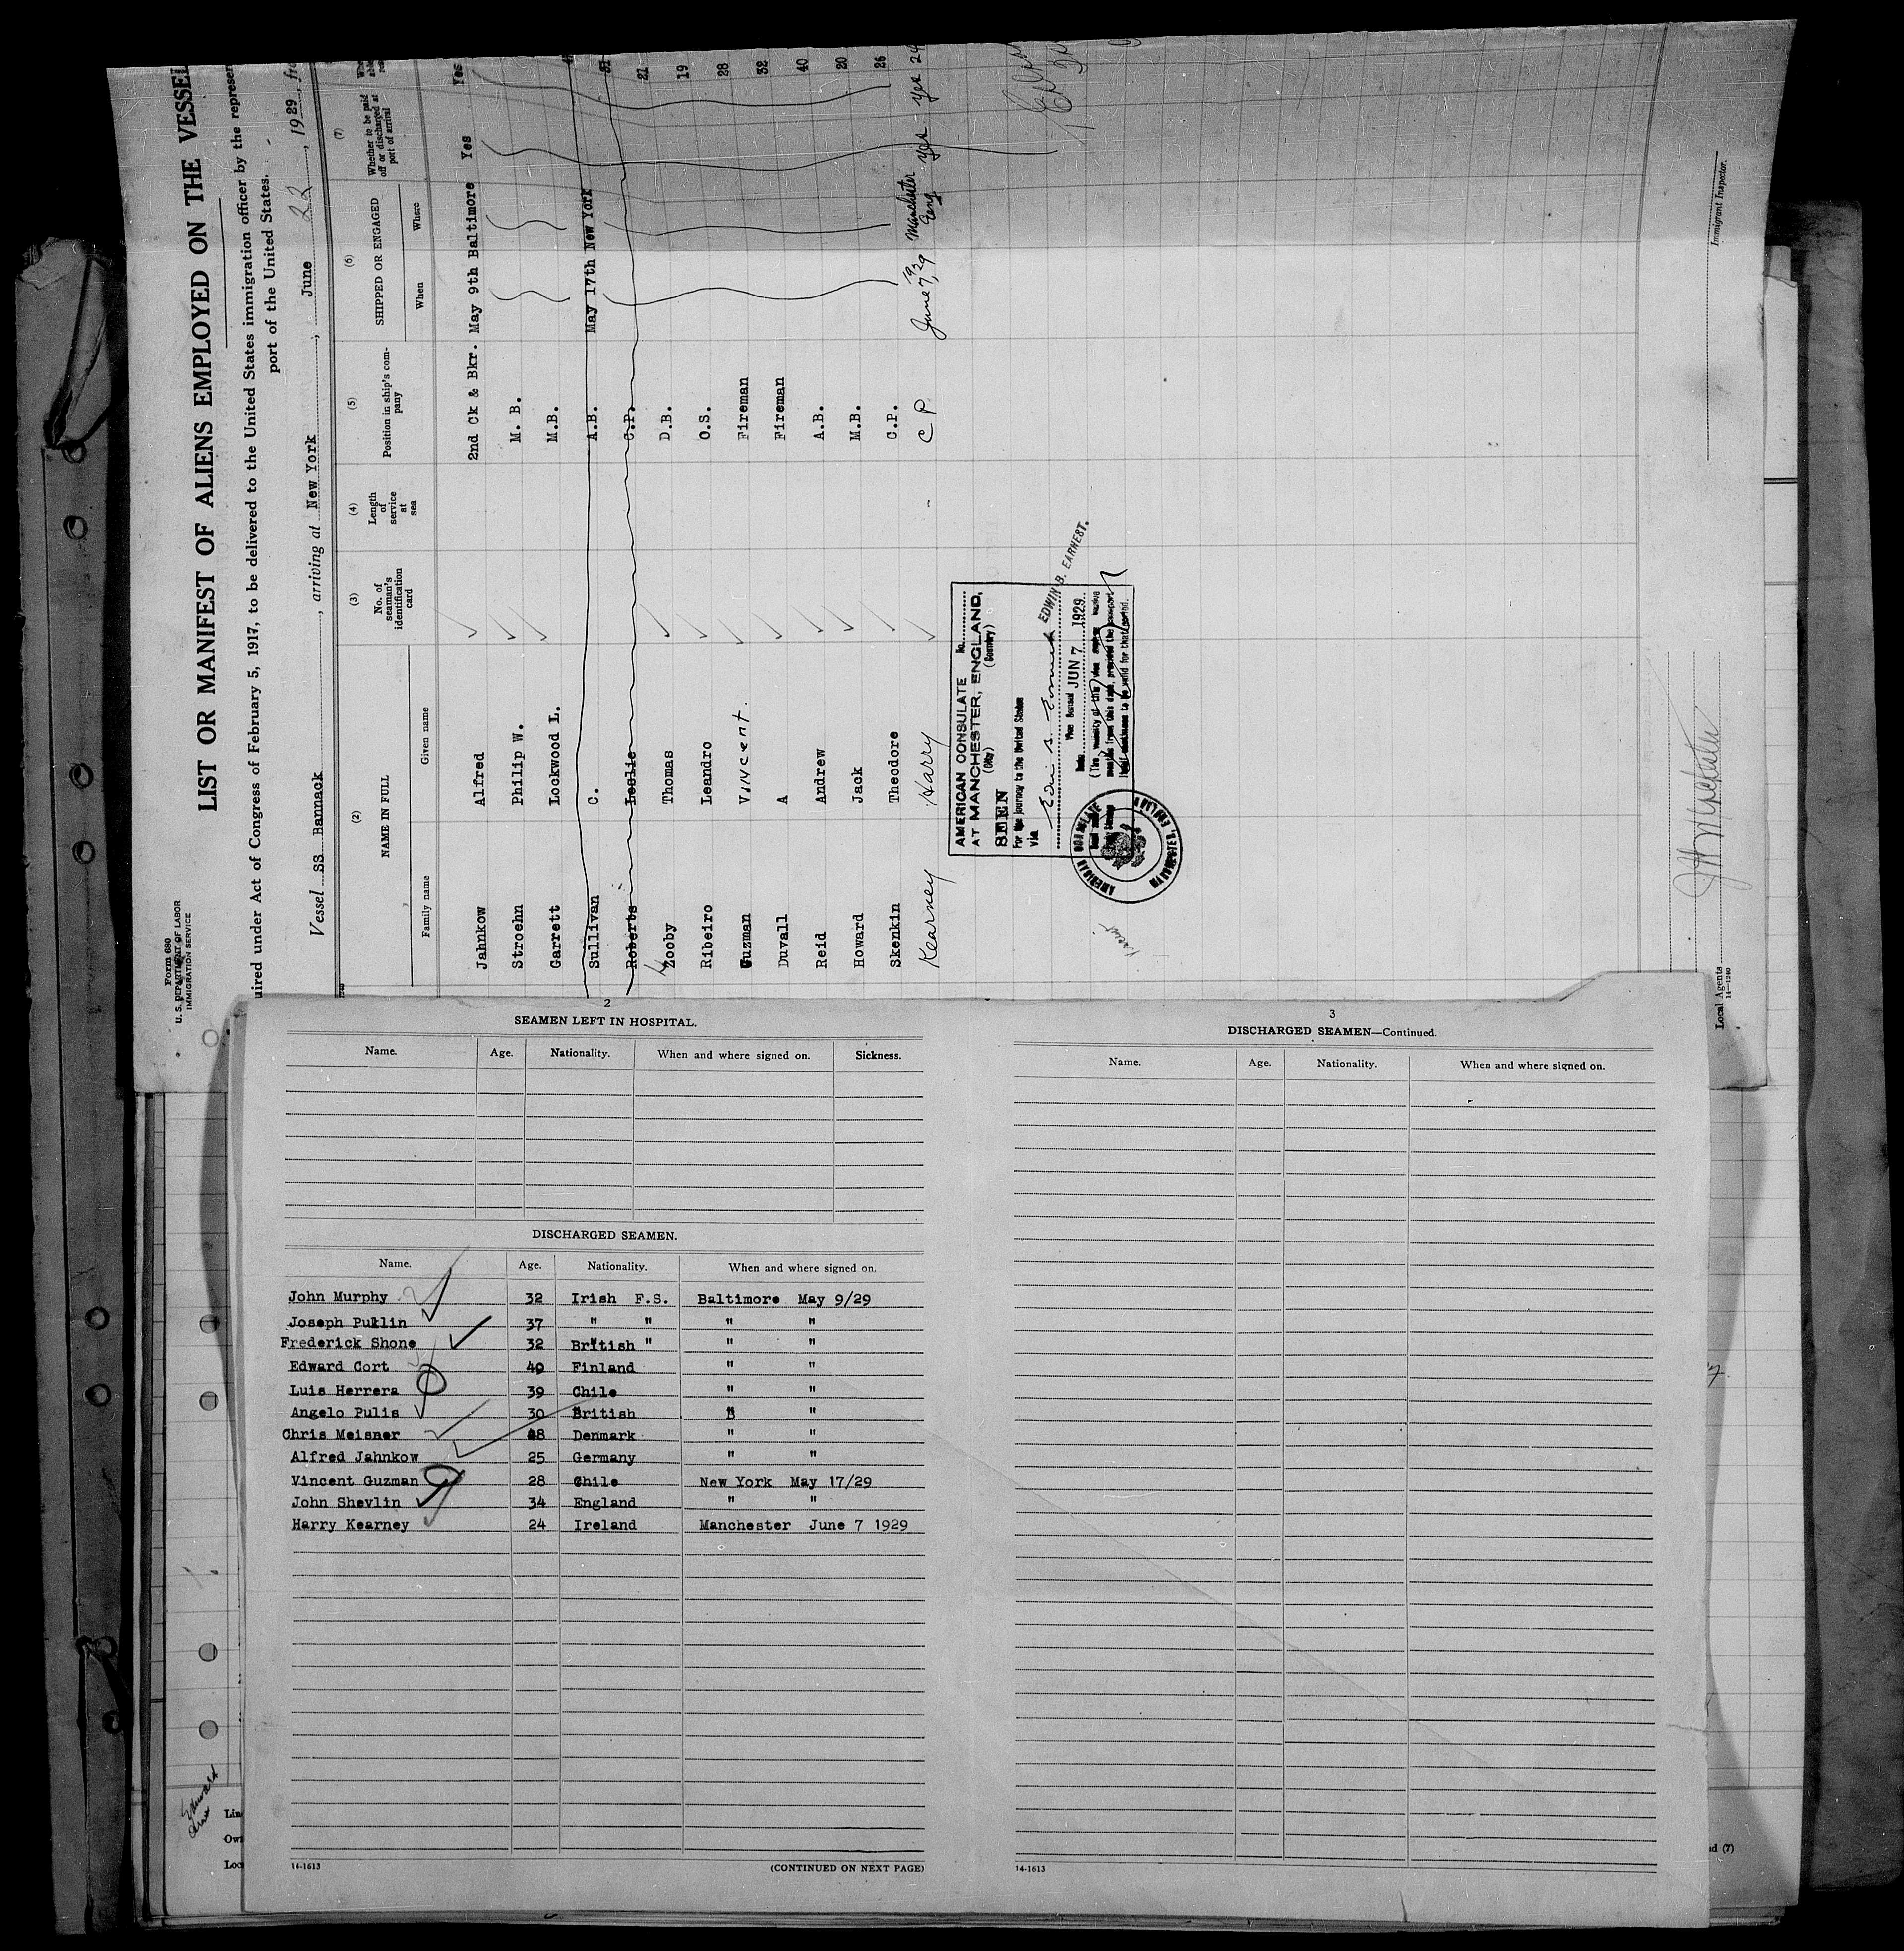 Form 680
U. S. DEPARTMENT OF LABOR
IMMIGRATION SERVICE
LIST OR MANIFEST OF ALIENS EMPLOYED ON THE VESSEL
uired under Act of Congress of February 5, 1917, to be delivered to the United States immigration officer by the represen
port of the United States.
Vessel SS Bannack, arriving at New York, June 22, 1929, fro
(2) (3) (4) (5) (6) (7)
NAME IN FULL
No. of seaman's identification card
Length of service at sea
Position in ship's company
SHIPPED OR ENGAGED
Whether to be paid off or discharged at port of arrival
Family name Given name When Where
Jahnkow Alfred 2nd Ck & Bkr. May 9th Baltimore Yes Yes
Stroehn Philip W. M. B.
Garrett Lockwood L. M.B.
Sullivan C. A.B. May 17th New York
Roberts Leslie C.P.
Zooby Thomas D.B. 21
Ribeiro Leandro O.S. 19
Guzman Vincent. Fireman 28
Duvall A Fireman 32
Reid Andrew A.B. 40
Howard Jack M.B. 20
Skenkin Theodore C.P. 26
Kearney Harry - C P June 7, 1929 Manchester Eng yes yes 24
AMERICAN CONSULATE No.
AT MANCHESTER, ENGLAND,
(City) (Country)
SEEN
For the journey to the United States
via
EDWIN B. EARNEST.
Vice Consul
Date JUN 7 1929
Immigrant Inspector.
Local Agents
14-1240
2
SEAMEN LEFT IN HOSPITAL.
Name. Age. Nationality. When and where signed on. Sickness.
DISCHARGED SEAMEN.
Name. Age. Nationality. When and where signed on.
John Murphy 32 Irish F.S. Baltimore May 9/29
Joseph Puklin 37 " " " "
Frederick Shone 32 British " " "
Edward Cort 40 Finland " "
Luis Herrera 39 Chile " "
Angelo Pulis 30 British " "
Chris Meisner 48 Denmark " "
Alfred Jahnkow 25 Germany " "
Vincent Guzman 28 Chile New York May 17/29
John Shevlin 34 England " "
Harry Kearney 24 Ireland Manchester June 7 1929
14-1613 (CONTINUED ON NEXT PAGE)
3
DISCHARGED SEAMEN—Continued.
Name. Age. Nationality. When and where signed on.
14-1613
Lin
Own
Loc
nd (7)